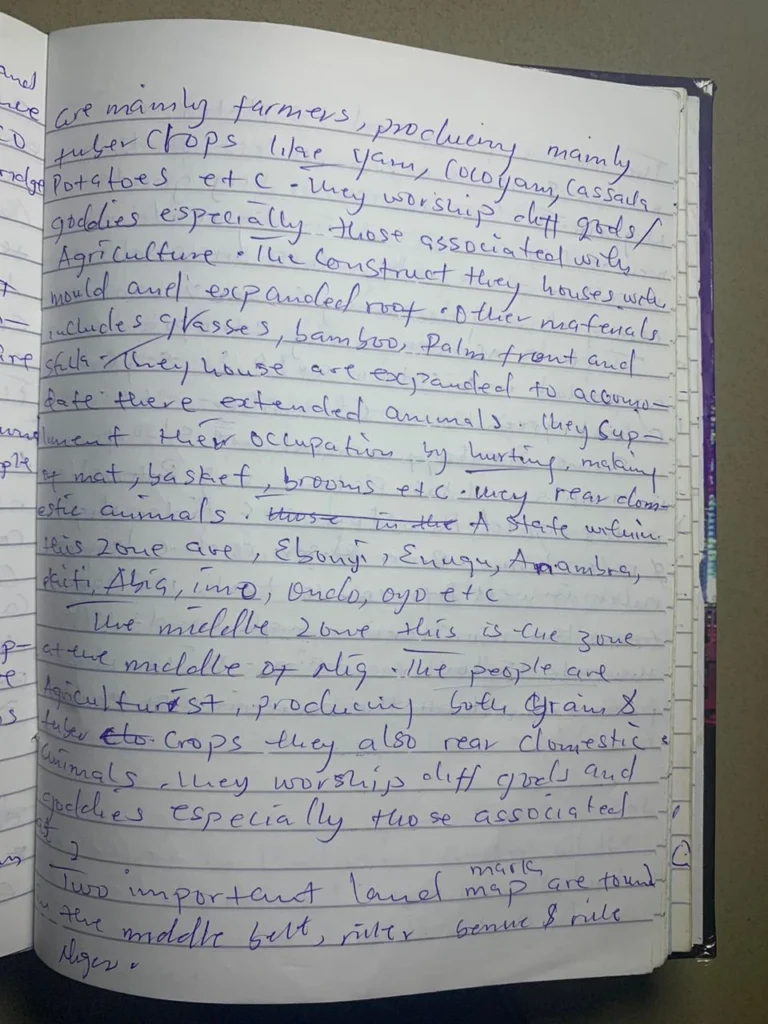 are mainly farmers, producing mainly
tuber crops like yam, Cocoyam, Cassava
Potatoes etc. They worship diff gods/
goddies especially those associated with
Agriculture. The Construct they houses with
mould and expanded roof. Other materials
includes grasses, bamboo, Palm front and
They house are expanded to accomo-
date there extended animals. They Sup-
liment their occupation by hurting, making
of mat, basket, brooms etc. They rear dom-
estic animals. those in the A State within
this zone are, Ebonyi, Enugu, Anambra,
Ekiti, Abia, imo, Ondo, oyo etc
The middle zone this is the zone
at the middle of Nig. The people are
Agriculturist, producing both grain &
tuber Crops they also rear domestic
animals. They worship diff gods and
goddies especially those associated
Two important land mark map are found
in the middle belt, river benue &
Niger.